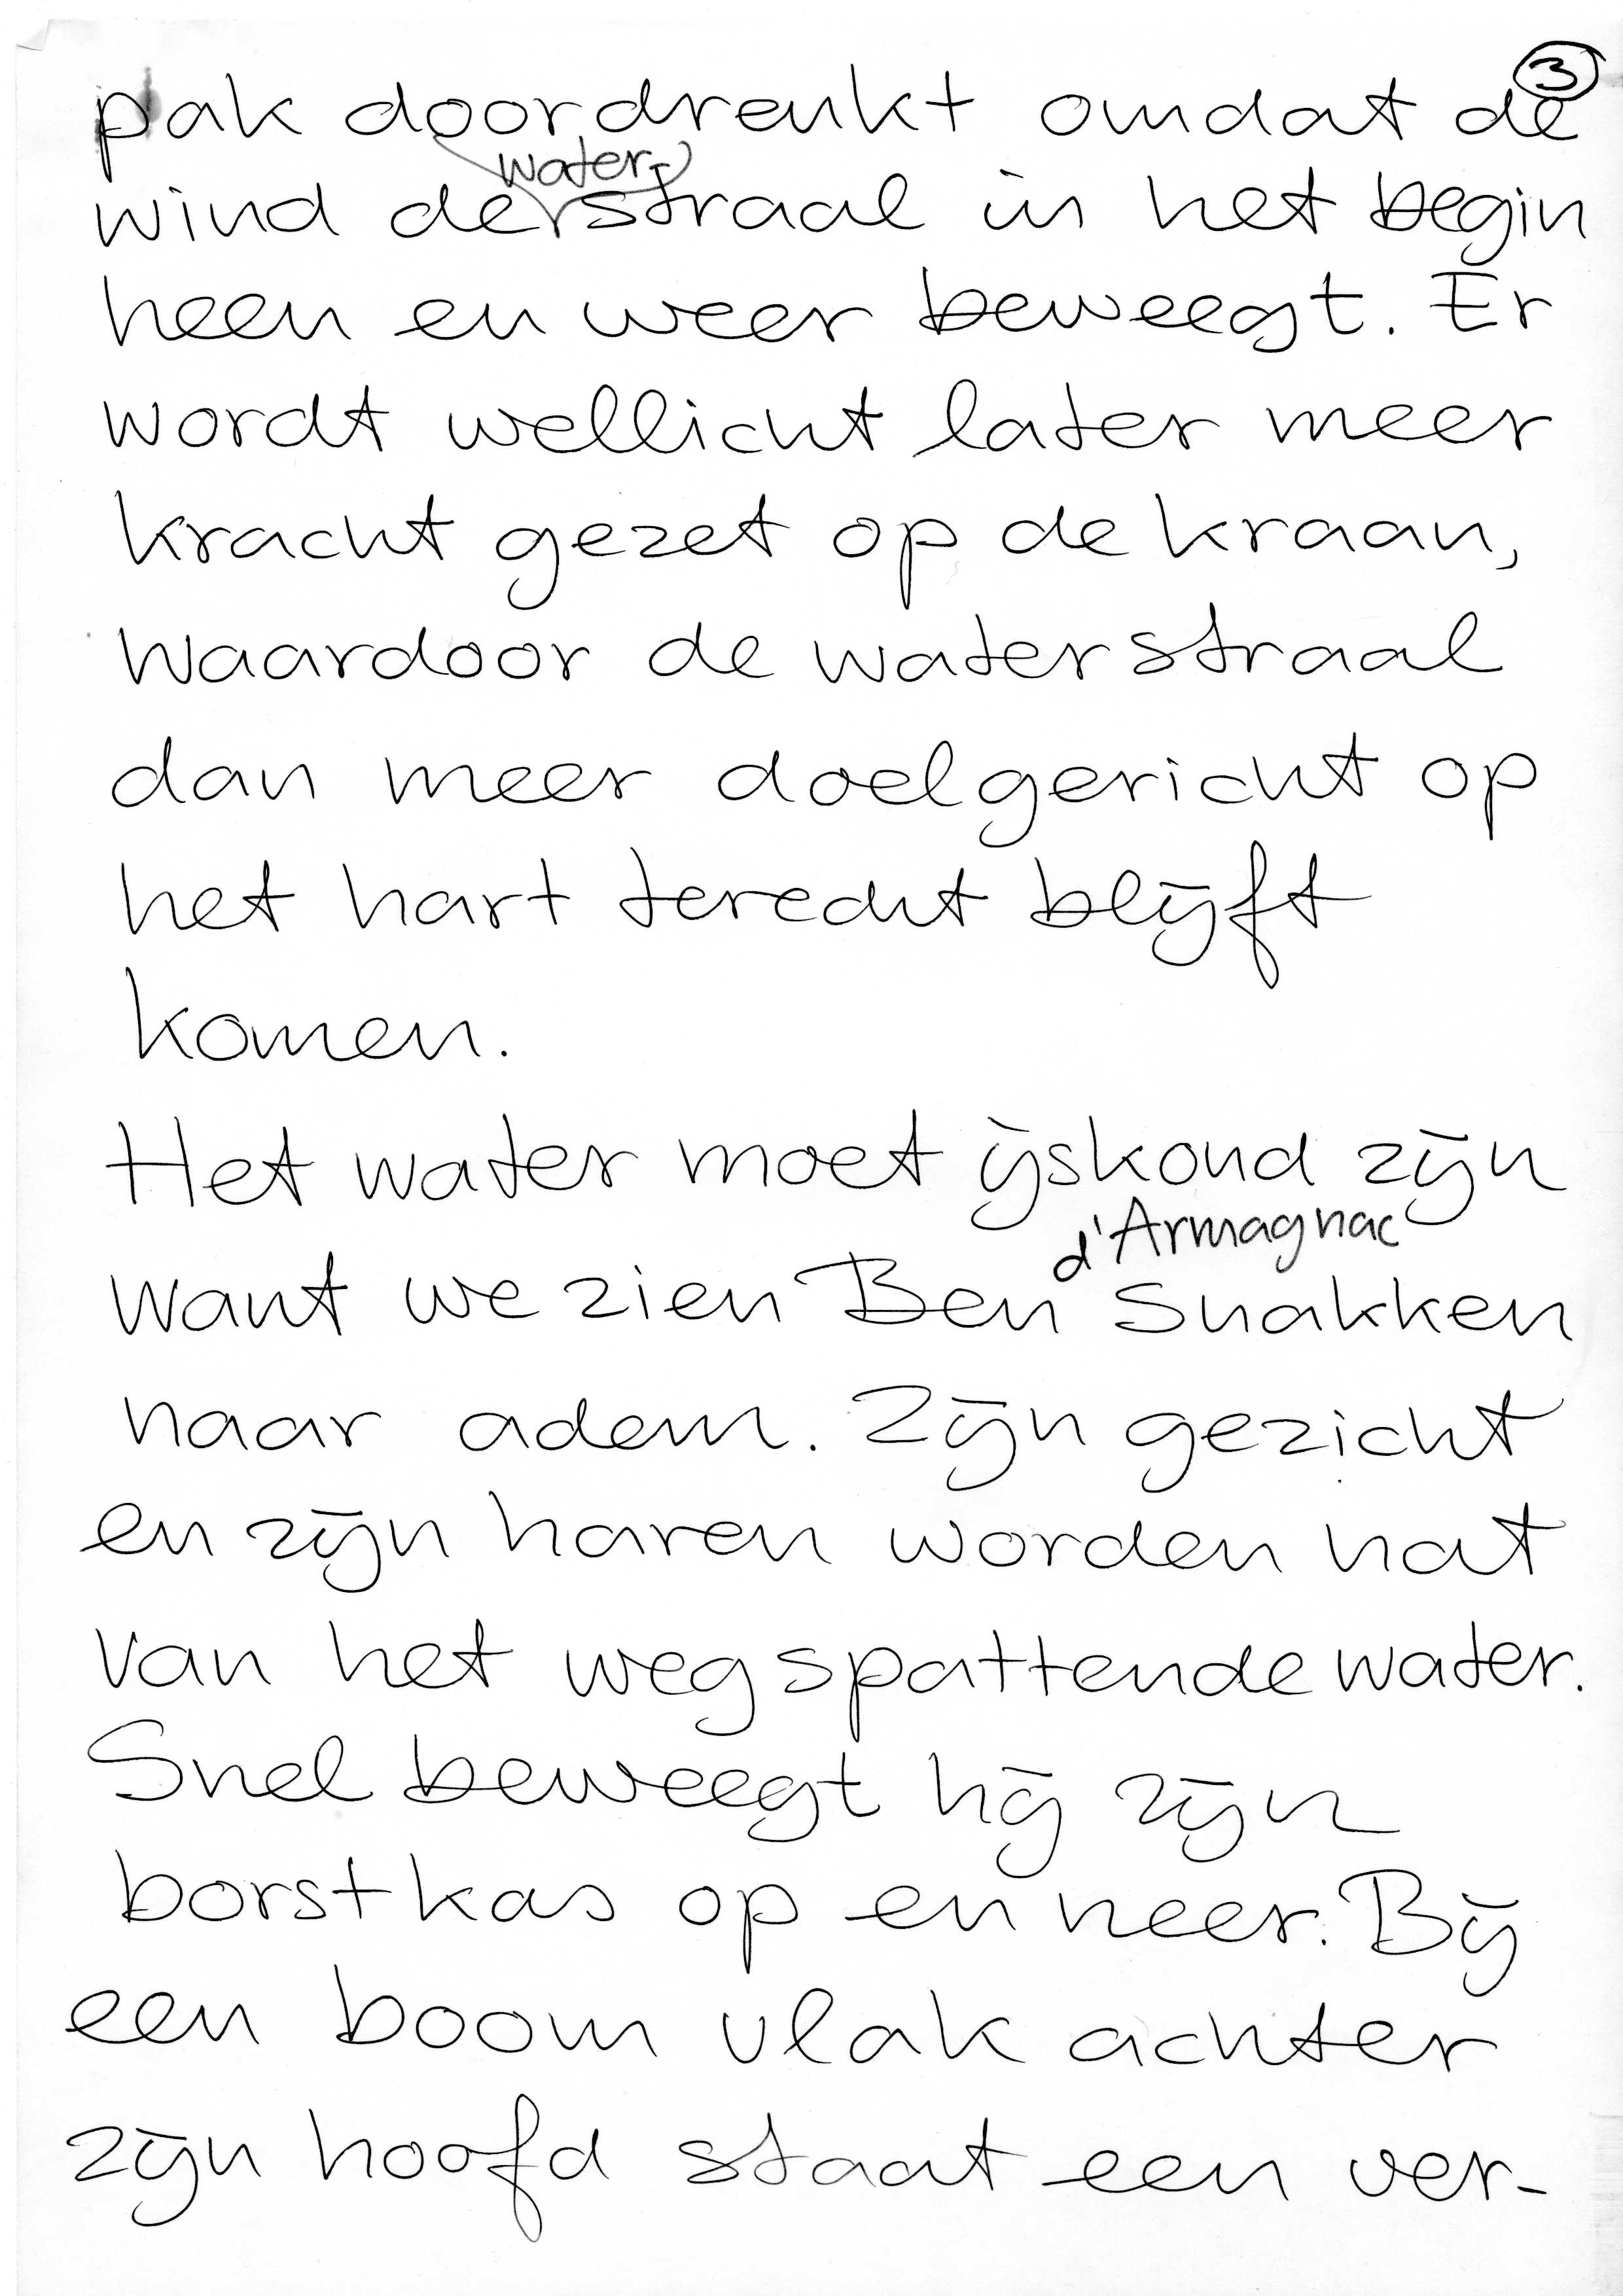 3
pak doordrenkt omdat de
water-
wind de straal in het begin
heen en weer beweegt. Er
wordt wellicht later meer
kracht gezet op de kraan,
waardoor de waterstraal
dan meer doelgericht op
het hart terecht blijft
komen.
Het water moet ijskoud zijn
d'Armagnac
want we zien Ben snakken
naar adem. Zijn gezicht
en zijn haren worden nat
van het wegspattende water.
Snel beweegt hij zijn
borstkas op en neer. Bij
een boom vlak achter
zijn hoofd staat een ver-